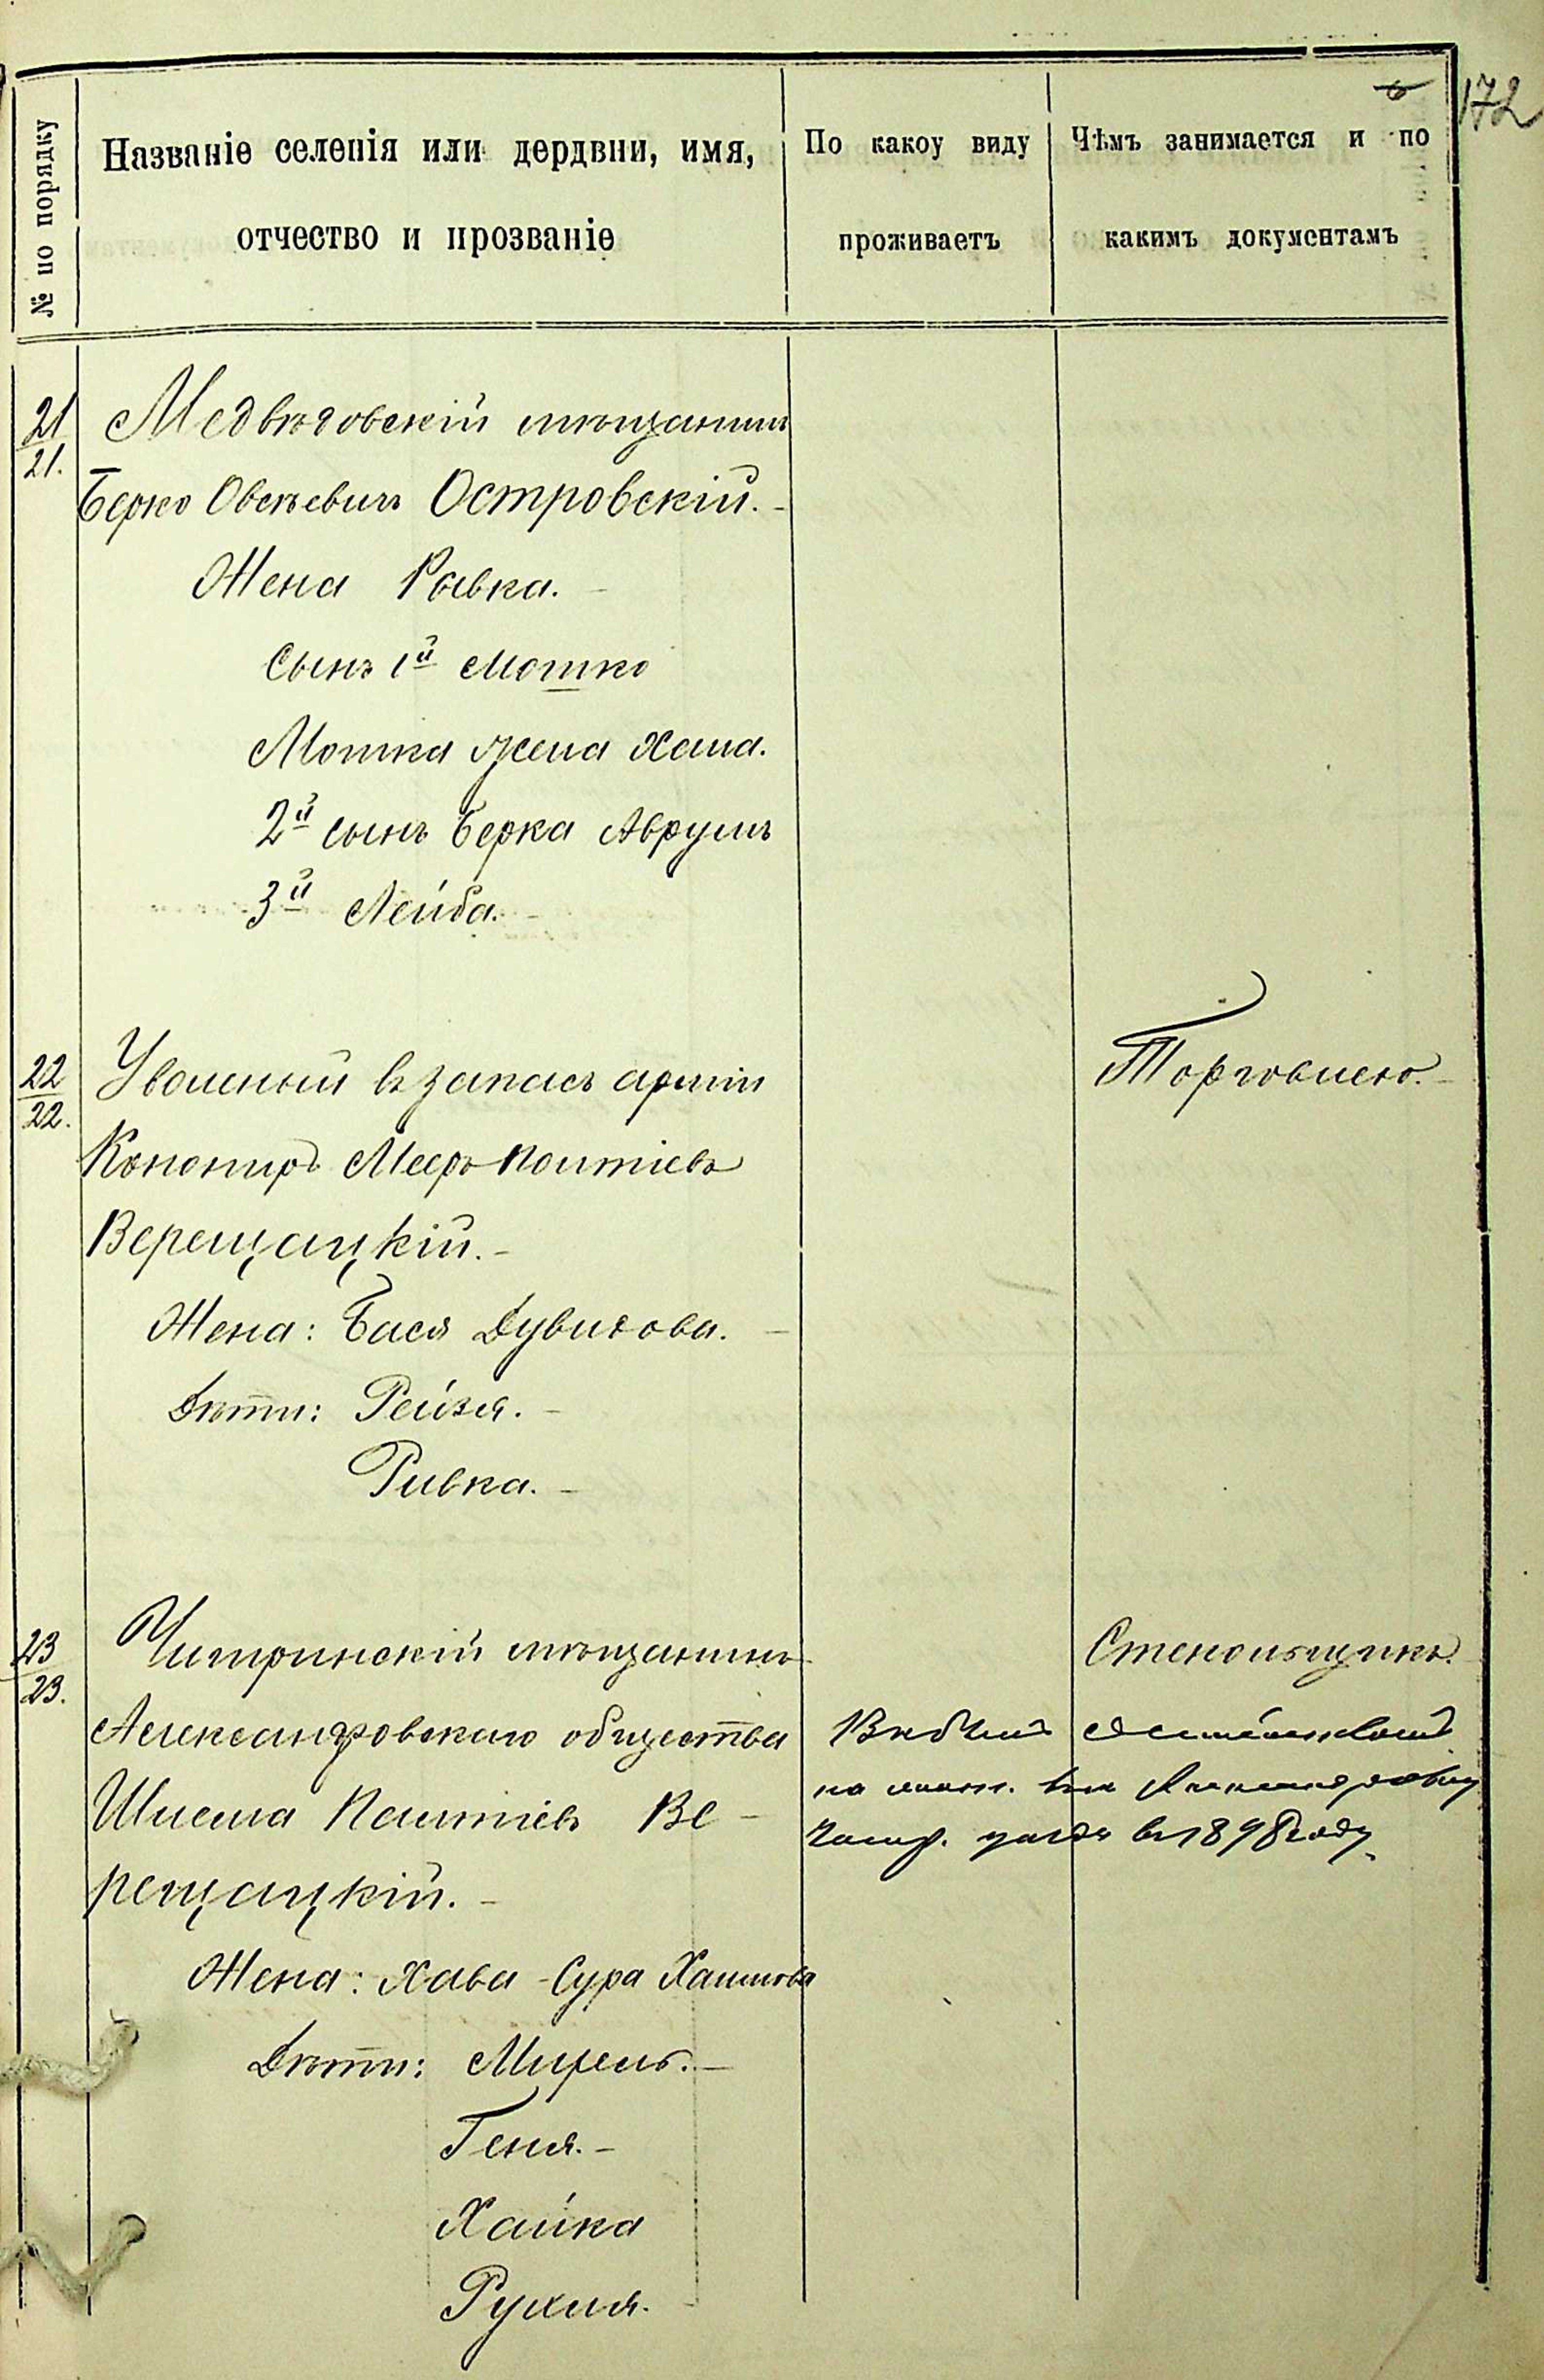 172
6
№ по порядку
Названіе селенія или дердвни, имя,
отчество и прозваніе
По какоу виду
проживаетъ
Чѣмъ занимается и по
какимъ документамъ
21
21.
Медвѣдовскій мѣщанинъ
Берко Овсѣевичъ Островскій.-
Жена Равка.-
Сынъ 1й Мошко
Мошка жена Хана.
2й сынъ Берка Аврумъ
3й Лейба.-
22
22.
Уволеный въ запасъ арміи
Канониръ Мееръ
Верещацкій.-
Жена: Бася Дувидова.-
Дѣти: Рейзя.-
Ривка.-
Торговлею.-
23
23.
Чигринскій мѣщанинъ
Александровскаго общества
Шлема Ве-
рещацкій.-
Стекольщикъ.
въ 1898 году
Жена: Хава-Сура Хаимова
Дѣти: Мирель.-
Геня.-
Хайка
Рухля.